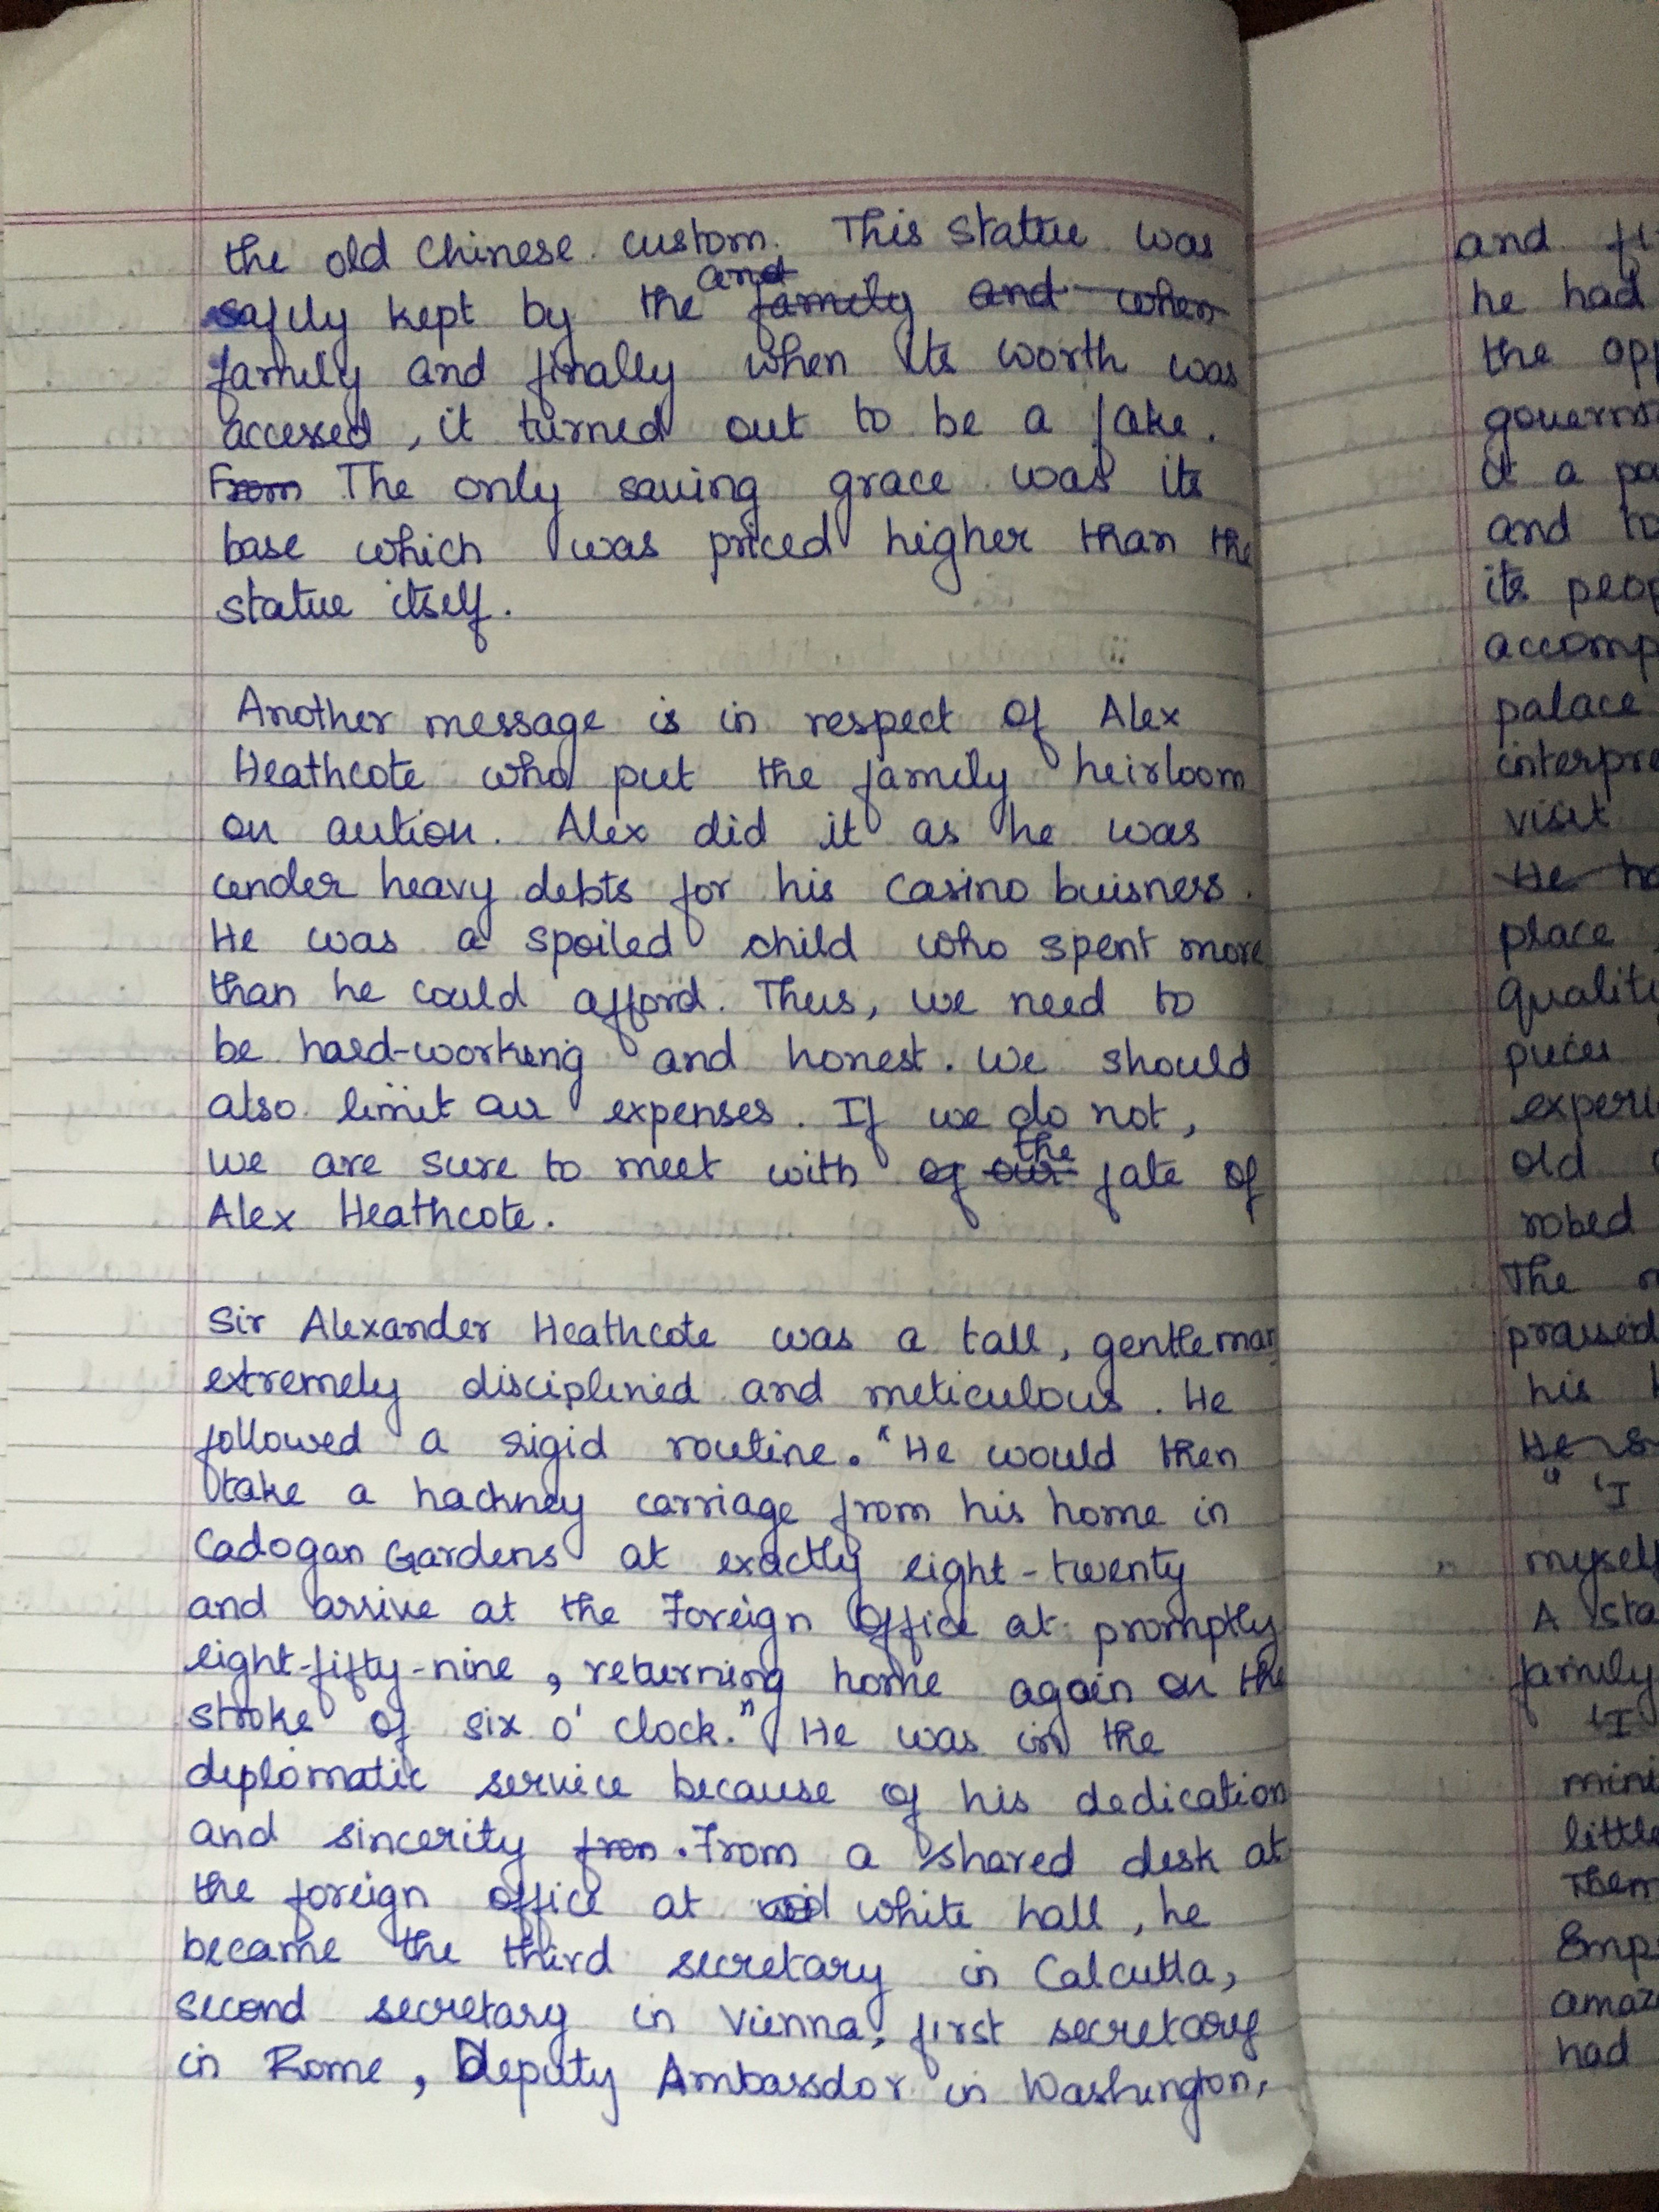 the old Chinese custom. This statue was
and
safely kept by the family and when
family and finally when its worth was
accessed, it turned out to be a fake.
From The only saving grace was its
base which was priced higher than the
statue itself.
Another message is in respect of Alex
Heathcote who put the family heirloom
on aution. Alex did it as he was
under heavy debts for his casino buisness.
He was a spoiled child who spent more
than he could afford. Thus, we need to
be hard-working and honest. We should
also limit our expenses. If we do not,
the
we are sure to meet with of our fate of
Alex Heathcote.
Sir Alexander Heathcote was a tall, gentleman
extremely disciplined and meticulous. He
followed a rigid routine. "He would then
take a hackney carriage from his home in
Cadogan Gardens at exactly eight-twenty
and arrive at the Foreign Office at promptly
eight-fifty-nine, returning home again on the
stroke of six o' clock." He was in the
diplomatic service because of his dedication
and sincerity fron. From a shared desk at
the foreign office at white hall, he
became the third secretary in Calcutta,
second secretary in Vienna, first secretary
in Rome, Deputy Ambassdor in Washington,
and
he had
the
it a
and
its
palace
visit
He
place
old
robed
The
praised
his
" 'I
A
family
'I
had